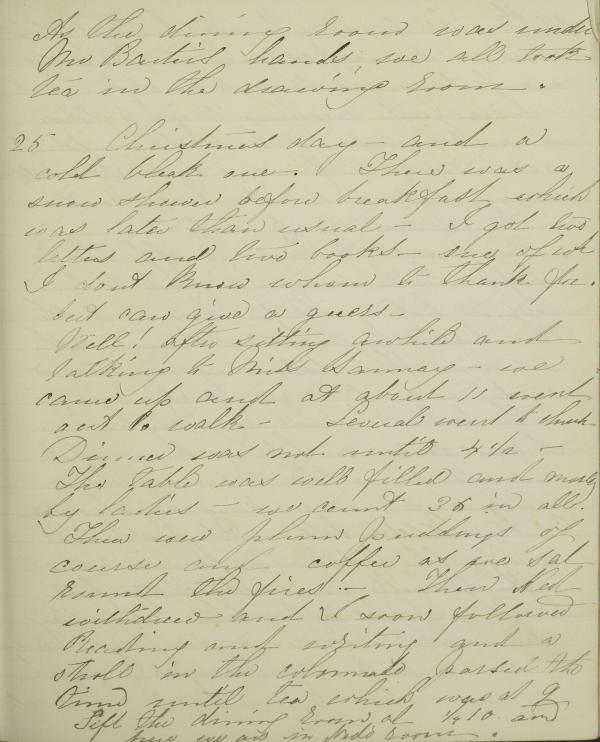 As the dining room was under
Mr Bartiis hands, we all took
tea in the drawing room.
25 Christmas day - and a
cold bleak one. There was a
snow shower before breakfast which
was later than usual - I got two
letters and two books - one of wh
I dont know whom to thank for.
but can give a guess -
Well! after sitting awhile and
talking to Miss Hannay - we
came up and at about 11 went
out to walk - Several went to church
Dinner was not until 4 1/2 -
The table was well filled and mostly
by ladies - we count 36 in all.
There were plum puddings of
course and coffee as we sat
round the fires - Then Ned
withdrew and I soon followed
Reading and writing and a
stroll in the colonnade passed the
time until tea which was at 9
Left the dining room at 1/2 10 and
here we are in Neds room.